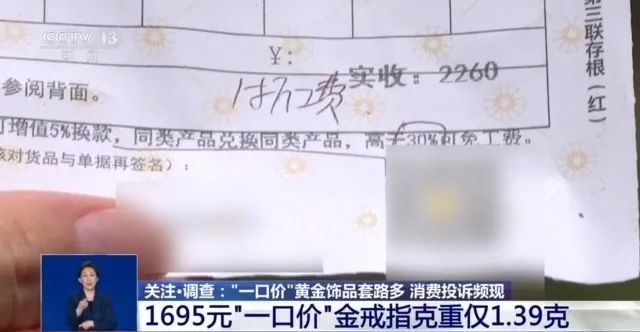 CCTV 13
第三联存根(红)
¥:
费 实收:2260
参阅背面。
增值5%换款,同类产品兑换同类产品,高于30%可免工费。
核对货品与单据再签名):
关注·调查:"一口价"黄金饰品套路多 消费投诉频现
1695元"一口价"金戒指克重仅1.39克